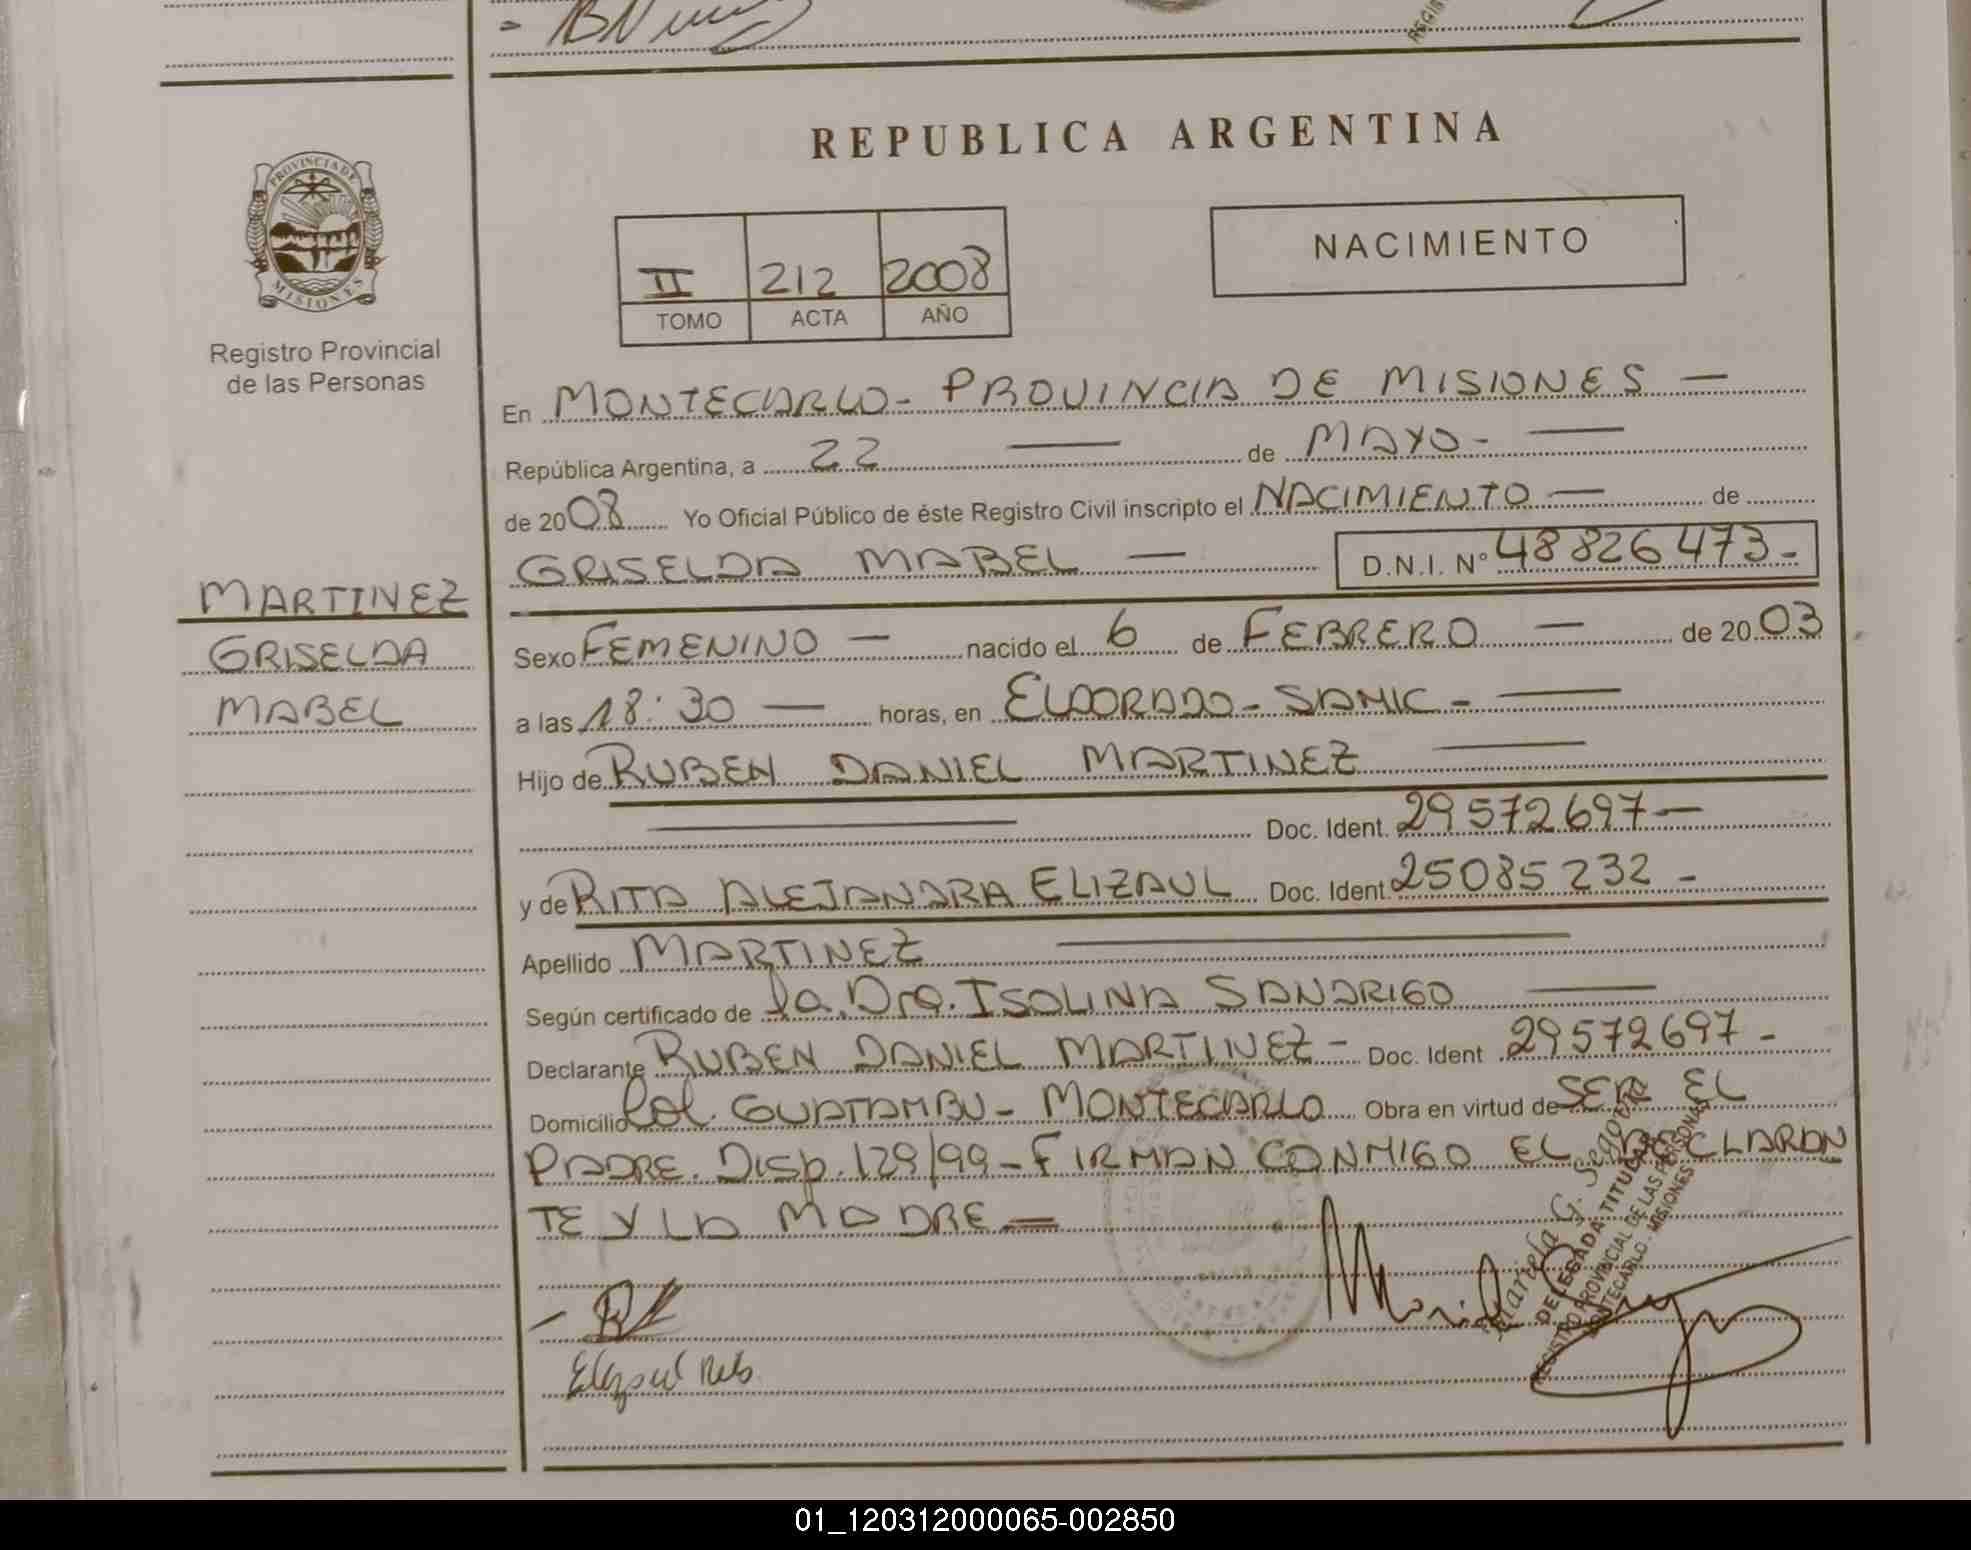 PROVINCIA DE
MISIONES
Registro Provincial
de las Personas
MARTINEZ
GRISELDA
MABEL
REPUBLICA ARGENTINA
II 212 2008
TOMO ACTA AÑO
NACIMIENTO
En MONTECARLO- PROVINCIA DE MISIONES —
República Argentina, a 22 — de MAYO- —
de 2008 Yo Oficial Público de éste Registro Civil inscripto el NACIMIENTO — de
GRISELDA MABEL — D.N.I. Nº 48826473-
Sexo FEMENINO — nacido el 6 de FEBRERO — de 2003
a las 18:30 — horas, en ELDORADO- SAMIC- —
Hijo de RUBEN DANIEL MARTINEZ —
— Doc. Ident. 29572697—
y de RITA ALEJANDRA ELIZAUL Doc. Ident. 25085232-
Apellido MARTINEZ —
Según certificado de la Dra. ISOLINA SANDRIGO —
Declarante RUBEN DANIEL MARTINEZ- Doc. Ident 29572697-
Domicilio Col. GUATAMBU- MONTECARLO Obra en virtud de SER EL
PADRE. DISp. 129/99- FIRMAN CONMIGO EL DECLARAN
TE Y LA MADRE—
Mariela G.
DELEGADA TITULAR
REGISTRO PROVINCIAL DE LAS PERSONAS
MONTECARLO - MISIONES
01_120312000065-002850